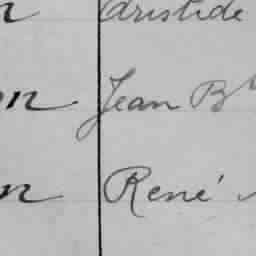 n Aristide
on Jean Bte
n René